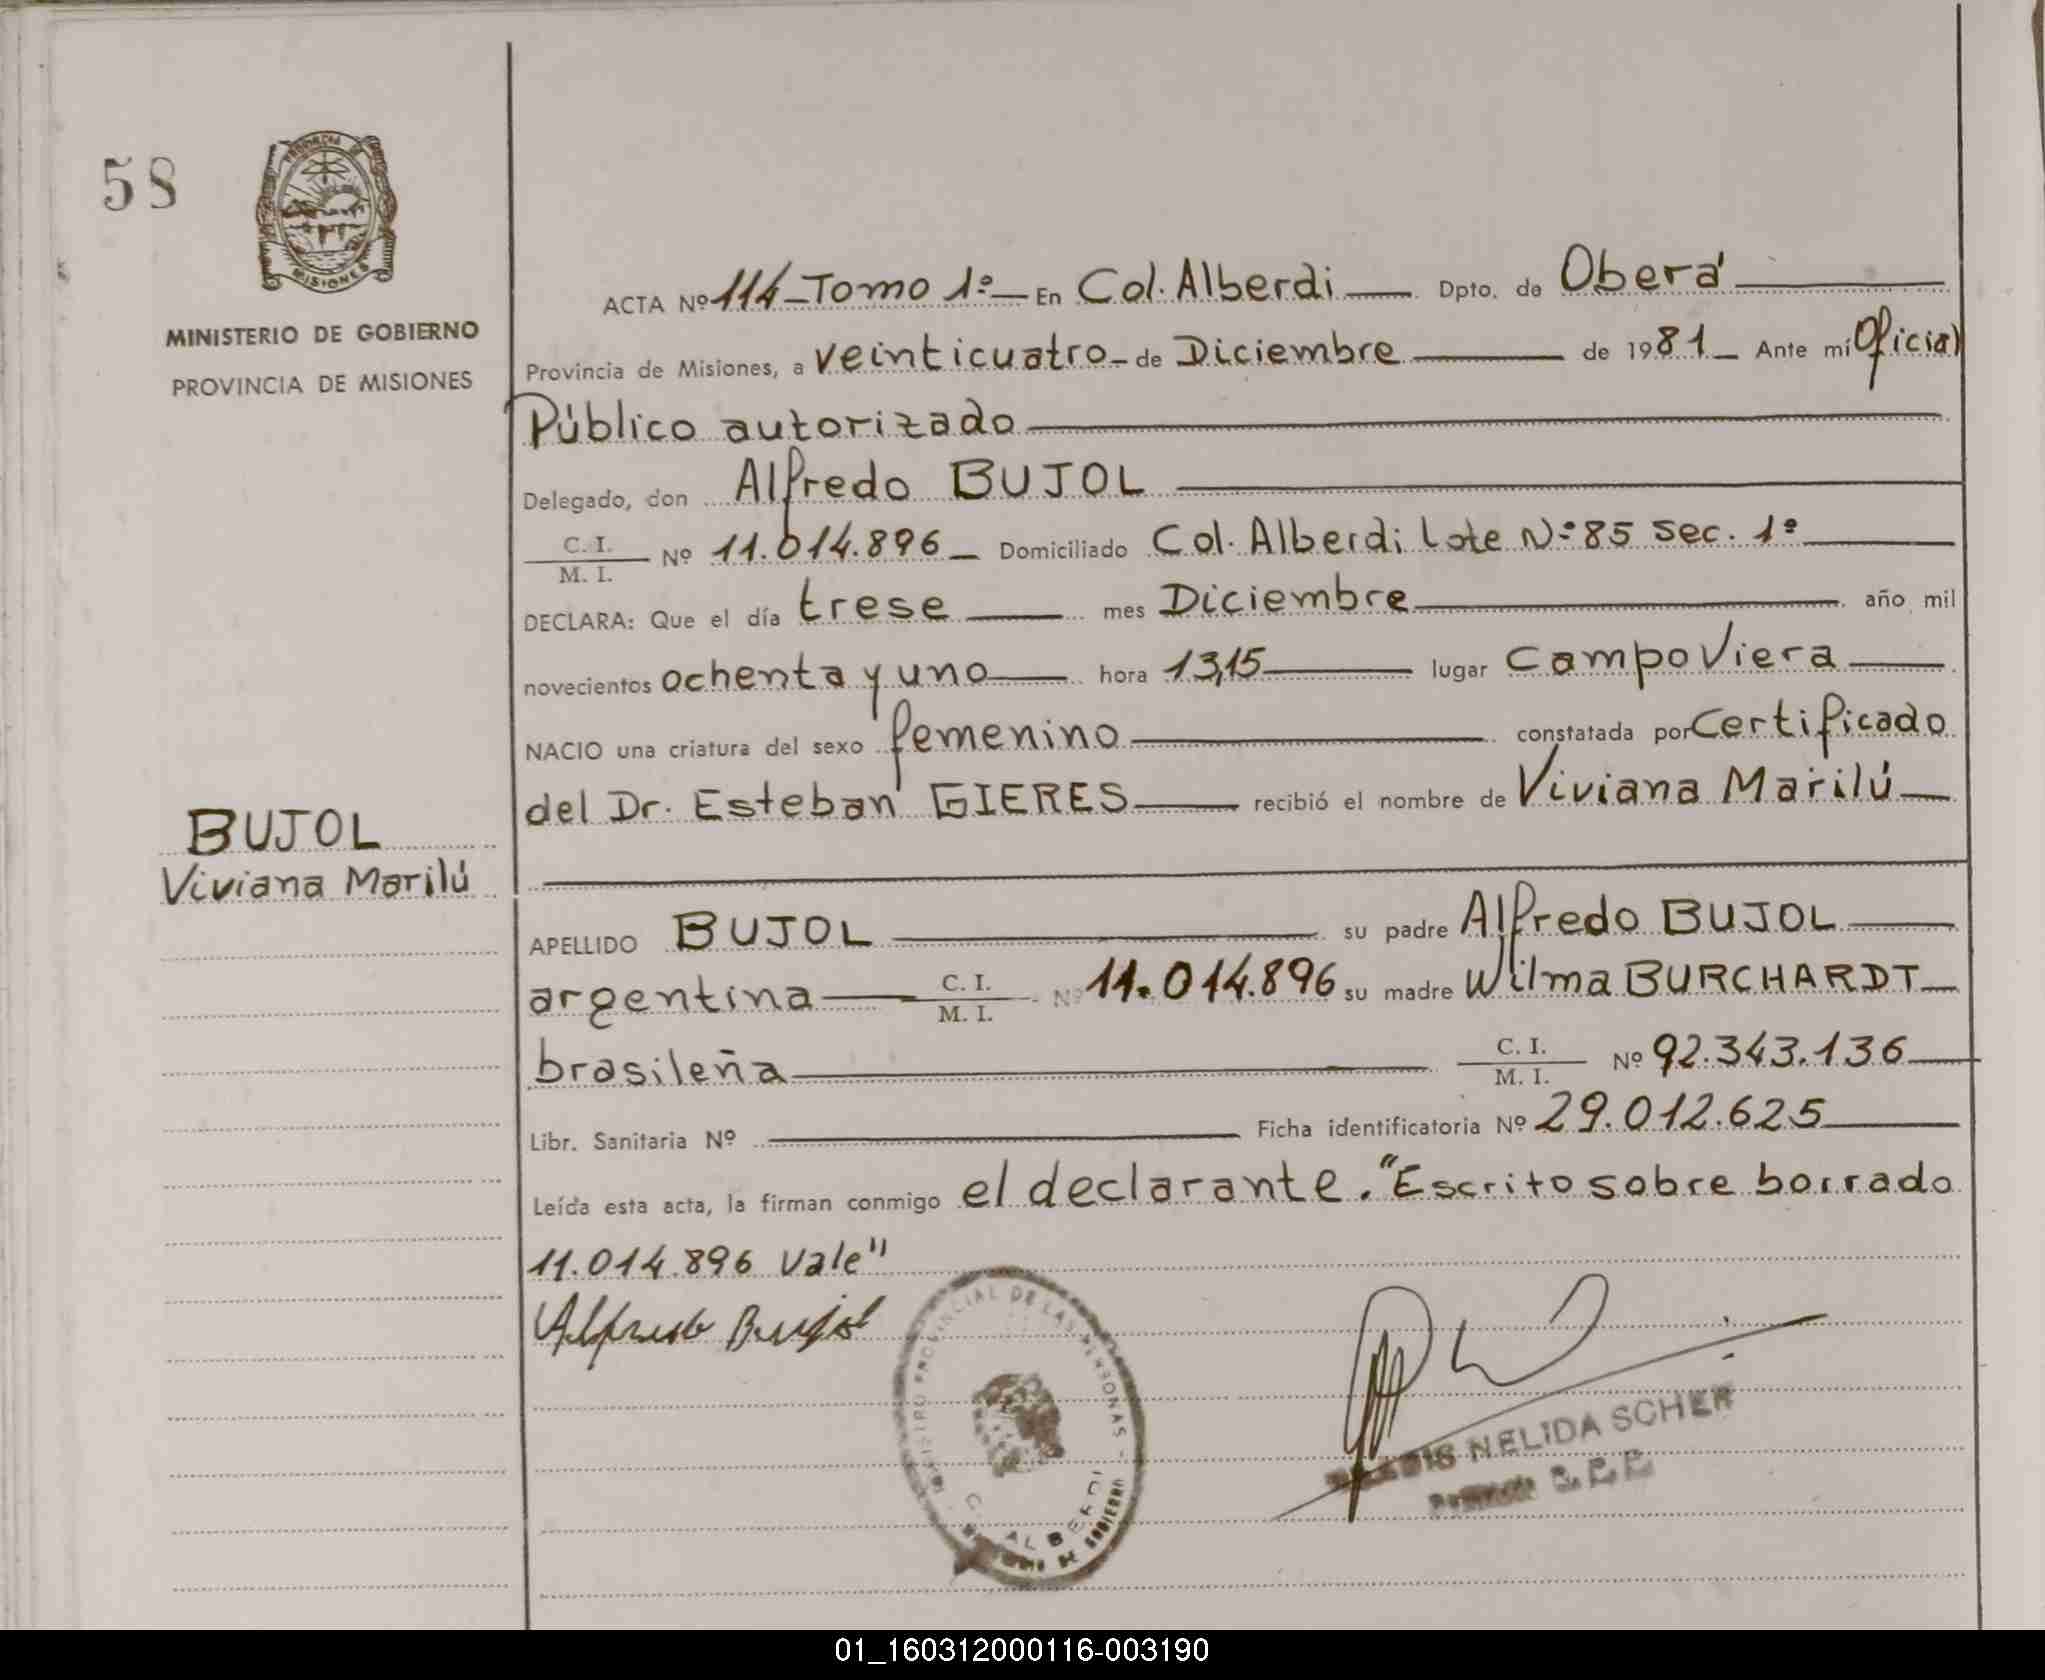 58
PROVINCIA DE
MISIONES
MINISTERIO DE GOBIERNO
PROVINCIA DE MISIONES
BUJOL
Viviana Marilú
ACTA Nº 114 - Tomo 1º - En Col. Alberdi Dpto. de Oberá
Provincia de Misiones, a veinticuatro - de Diciembre de 1981 - Ante mí Oficial
Público autorizado
Delegado, don Alfredo BUJOL
C. I.
M. I. Nº 11.014.896 - Domiciliado Col. Alberdi Lote Nº 85 Sec. 1º
DECLARA: Que el día trese mes Diciembre año mil
novecientos ochenta y uno hora 13,15 lugar Campo Viera
NACIO una criatura del sexo femenino constatada por Certificado
del Dr. Esteban GIERES recibió el nombre de Viviana Marilú
APELLIDO BUJOL su padre Alfredo BUJOL
argentina C. I. M. I. Nº 11.014.896 su madre Wilma BURCHARDT
brasileña C. I. M. I. Nº 92.343.136
Libr. Sanitaria Nº Ficha identificatoria Nº 29.012.625
Leída esta acta, la firman conmigo el declarante. "Escrito sobre borrado
11.014.896 Vale"
Alfredo Bujol
PROVINCIAL DE LAS PERSONAS -
ALBERDI
DE GOBIERNO
NELIDA SCHER
01_160312000116-003190